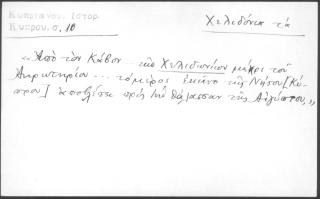 Κυπριανού. Ιστορ.
Κύπρου, σ. 10
Χελιδόνια τά
«Ἀπό τόν Κάβον τῶν Χελιδωνίων μέχρι τοῦ
Ἀκρωτηρίου... τό μέρος ἐκεῖνο τῆς Νήσου [Κύ-
πρου] ἀποβλέπει πρός τήν θάλασσαν τῆς Αἰγύπτου,»